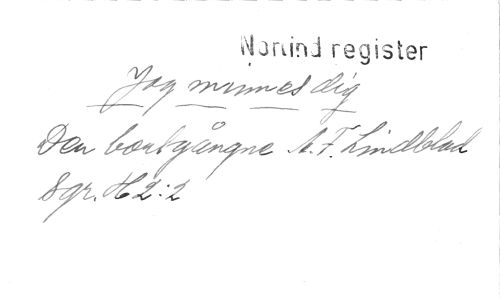 Norlind register
Jag minnes dig
Den bortgångne A. F. Lindblad
Sgr. H 2:2